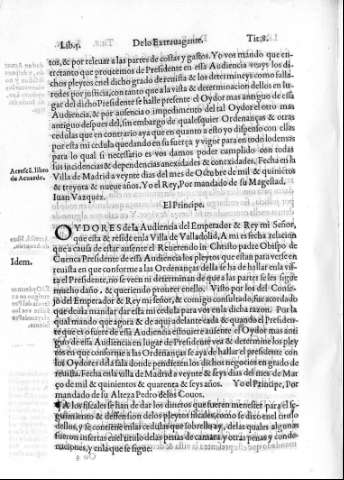 Lib.5. De lo Extrauagante. Tit.8.
tos, & por releuar a las partes de costas y gastos. Yo vos mando que en-
tretanto que proueemos de Presidente en essa Audiencia veays los di-
chos pleytos en el dicho grado de reuista & los determineys como falla-
redes por justicia, con tanto que a la vista & determinacion dellos en lu-
gar del dicho Presidente se halle presente el Oydor mas antiguo de essa
Audiencia, & por ausencia o impedimento del tal Oydor el otro mas
antiguo despues del, sin embargo de qualesquier Ordenanças & otras
cedulas que en contrario aya que en quanto a esto yo dispenso con ellas
por esta mi cedula quedando en su fuerça y vigor para en todo lo demas
para lo qual si necessario es vos damos poder cumplido con todas
sus incidencias & dependencias anexidades & conexidades. Fecha en la
Villa de Madrid a veynte dias del mes de Octubre de mil & quiniētos
& treynta & nueue años. Yo el Rey, Por mandado de su Magestad,
Iuan Vazquez.
El Principe.
OYDORES de la Audiencia del Emperador & Rey mi Señor,
que esta & reside en la Villa de Valladolid, A mi es fecha relaciõ
que a causa de estar ausente el Reuerendo in Christo padre Obispo de
Cuenca Presidente de essa Audiencia los pleytos que estan para verse en
reuista en que conforme a las Ordenanças della se ha de hallar en la vis-
ta el Presidente, no se veen ni determinan de que a las partes se les sigue
mucho daño, & queriendo proueer en ello. Visto por los del Conse-
jo del Emperador & Rey mi señor, & comigo consultado, fue acordado
que deuia mandar dar esta mi cedula para vos en la dicha razon. Por la
qual mando que agora & de aqui adelante cada & quando el Presiden-
te que es o fuere de essa Audiencia estouiere ausente el Oydor mas anti
guo de essa Audiencia en lugar de Presidente vea & determine los pley
tos en que conforme a las Ordenanças se aya de hallar el presidente con
los Oydores en la sala donde pendieren los dichos negocios en grado de
reuista. Fecha en la villa de Madrid a veynte & seys dias del mes de Mar
ço de mil & quinientos & quarenta & seys años. Yo el Principe, Por
mandado de su Alteza Pedro de los Couos.
¶ A los fiscales se han de dar los dineros que fueren menester para el se-
guimiento & deffension de los pleytos fiscales, como se dize en el titulo
dellos, y se contiene en las cedulas que sobre ello ay, de las quales algunas
fueron insertas en el titulo de las penas de camara y otras penas y conde-
naciones, y en la que se sigue.
Acuer.l. libro
de Acuerdos.
Idem.